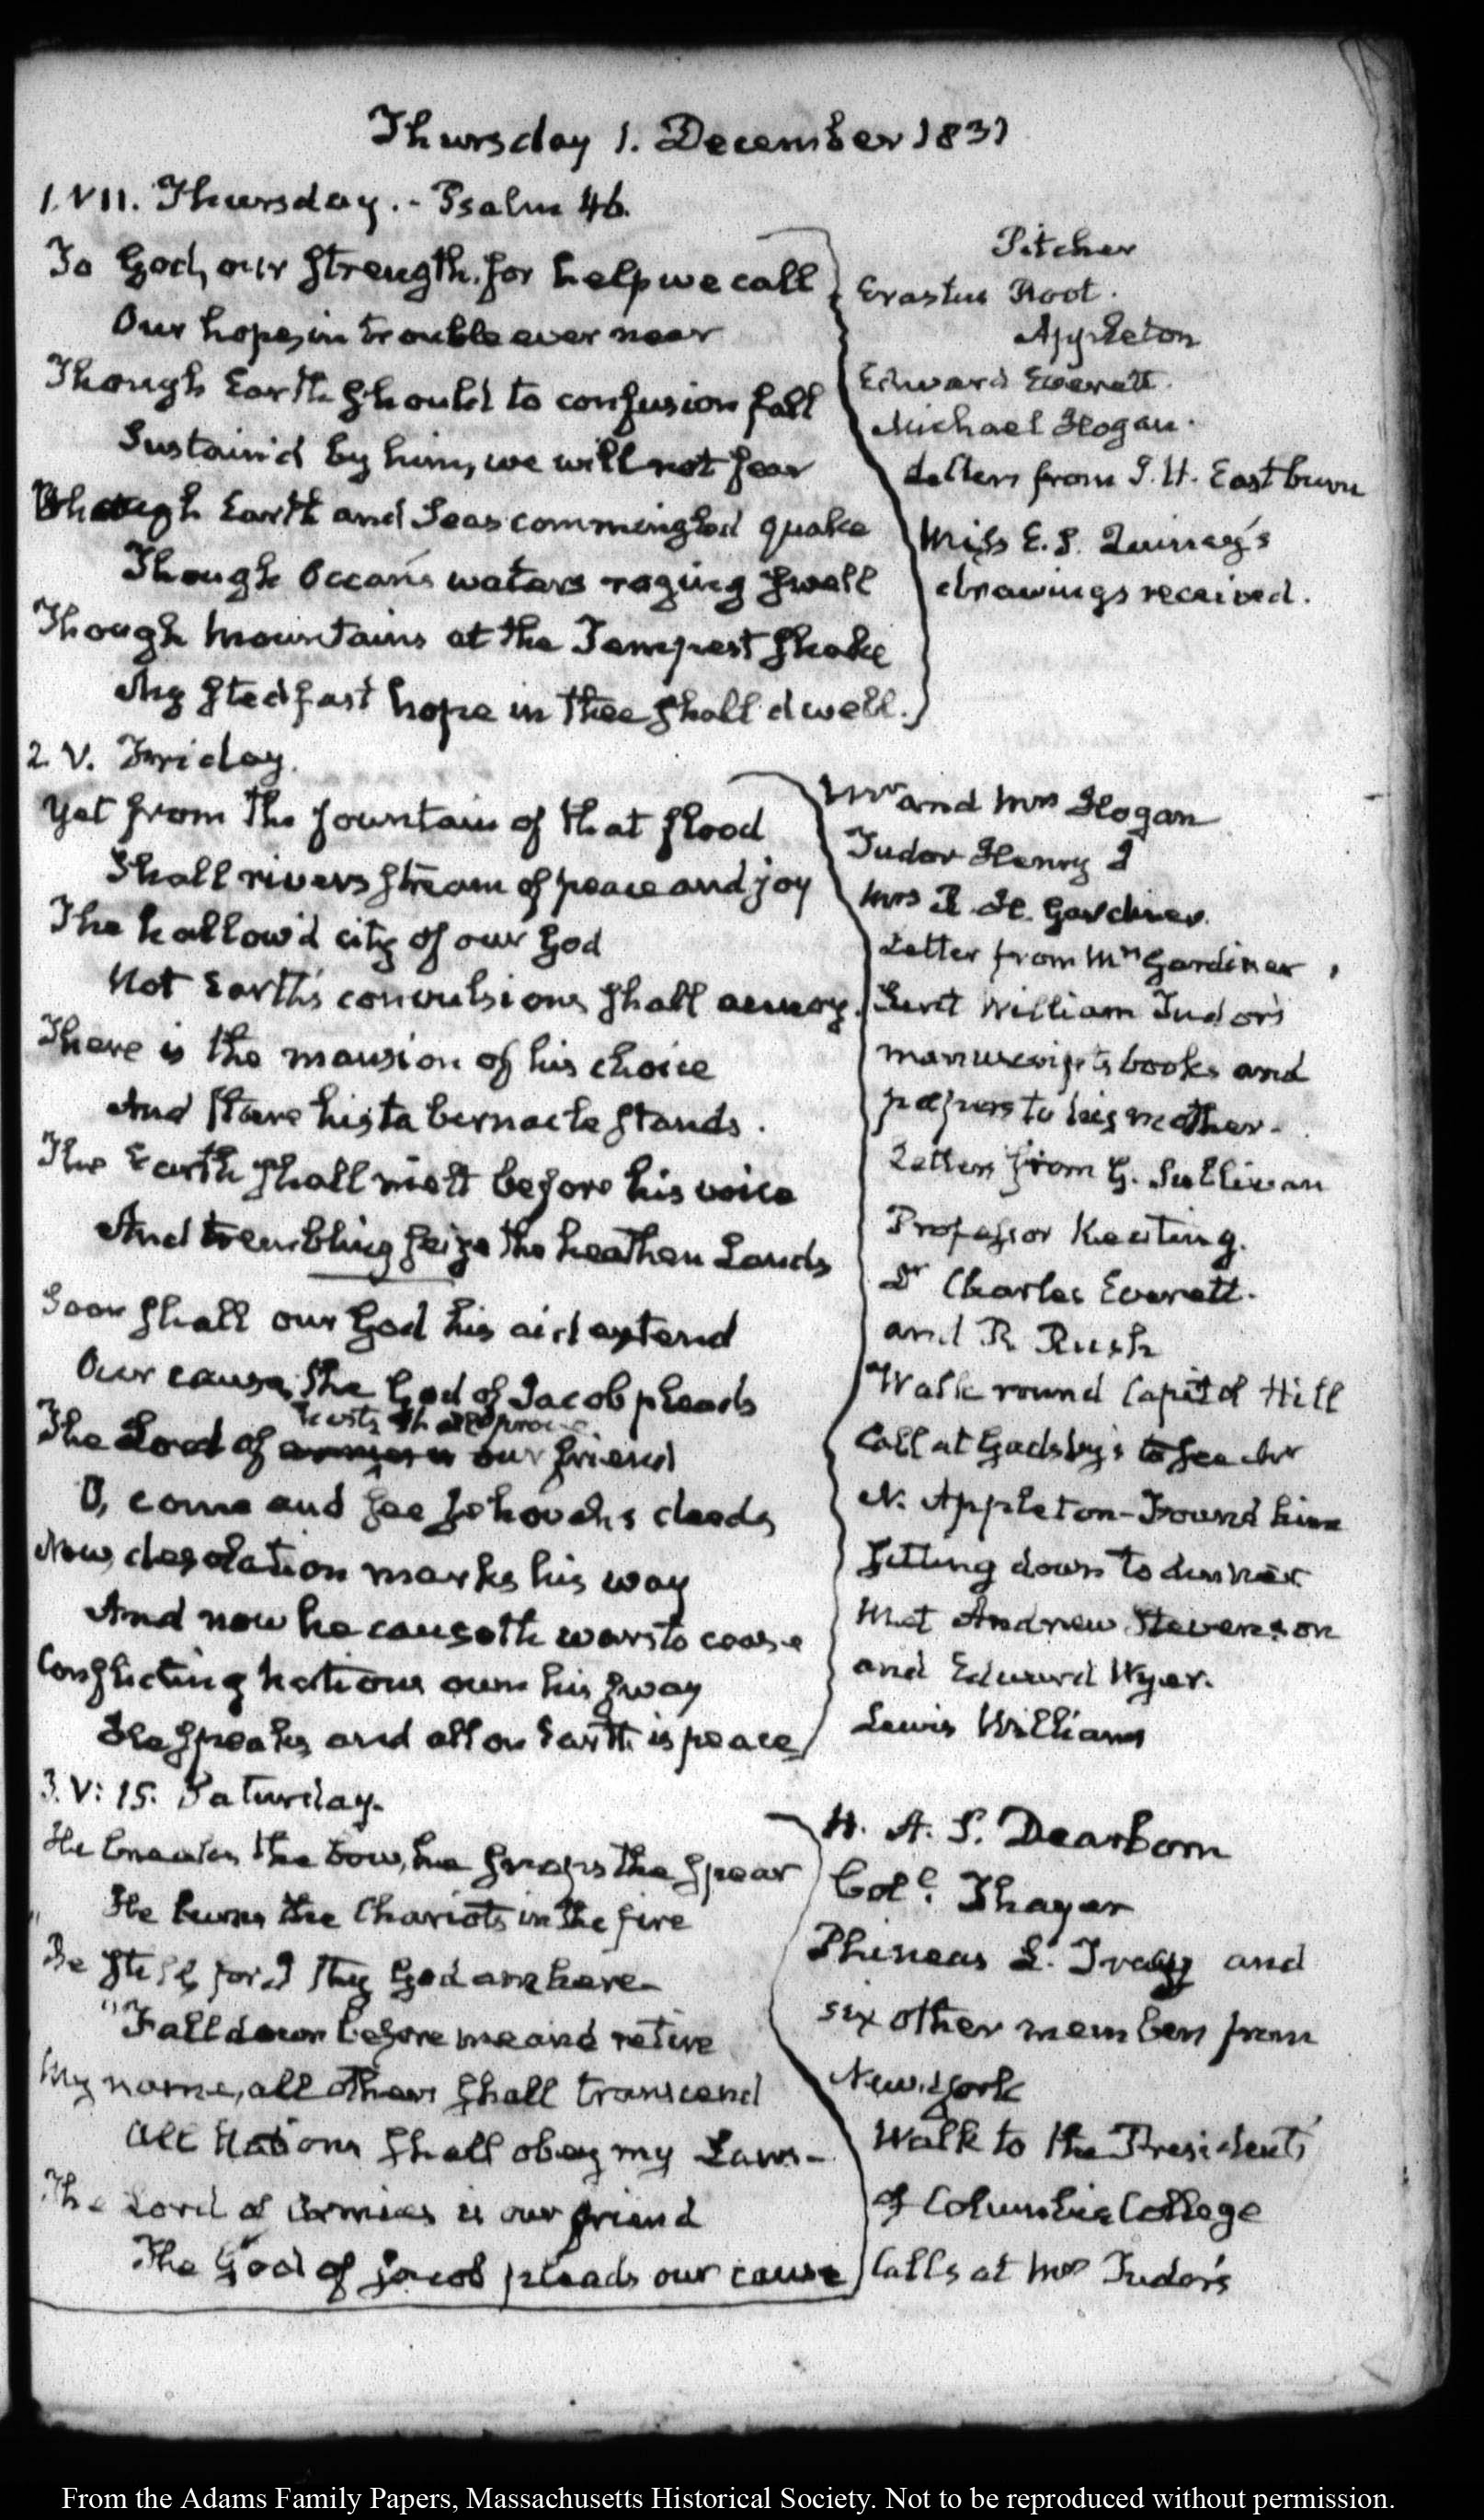 Thursday 1. December 1831
1. VII. Thursday. - Psalm 46.
To God, our strength, for help we call
Our hope, in trouble ever near
Though Earth should to confusion fall
Sustain'd by him, we will not fear
Though Earth and Seas commingled quake
Though Ocean's waters raging swell
Though Mountains at the Tempest shake
My stedfast hope in thee shall dwell.
Pitcher
Erastus Root.
Appleton
Edward Everett.
Michael Hogan.
Letters from J. H. Eastburn
Miss E. S. Quincy's
drawings received.
2. V. Friday.
Yet from the fountain of that flood
Shall rivers stream of peace and joy
The hallow'd city of our God
Not Earth's convulsions shall annoy.
There is the mansion of his choice
And there his tabernacle stands.
The Earth shall melt before his voice
And trembling seize the heathen Lands
Soon shall our God his aid extend
Our cause, the God of Jacob pleads
hosts shall prove
The Lord of armies is our friend
O, come and see Jehovah's deeds
Now, desolation marks his way
And now he causeth wars to cease
Conflicting Nations own his sway
He speaks, and all on Earth is peace
Mr and Mrs Hogan
Tudor Henry J
Mrs R. H. Gardiner.
Letter from Mrs Gardiner
Sent William Tudor's
manuscripts books and
papers to his mother-
Letters from G. Sullivan
Professor Keating.
Dr Charles Everett.
and R Rush
Walk round Capitol Hill
Call at Gadsby's to see Mr
N. Appleton - Found him
sitting down to dinner
Met Andrew Stevenson
and Edward Wyer.
Lewis Williams
3. V: 15. Saturday.
He breaks the bow, he snaps the spear
He burns the Chariots in the fire
"Be still, for I thy God am here-
"Fall down before me and retire
My name, all others shall transcend
All Nations shall obey my Laws-
The Lord of Armies is our friend
The God of Jacob pleads our cause
H. A. S. Dearborn
Colel. Thayer
Phineas L. Tracy and
six other members from
New-York
Walk to the President's
of Columbia College
Calls at Mrs Tudor's
From the Adams Family Papers, Massachusetts Historical Society. Not to be reproduced without permission.